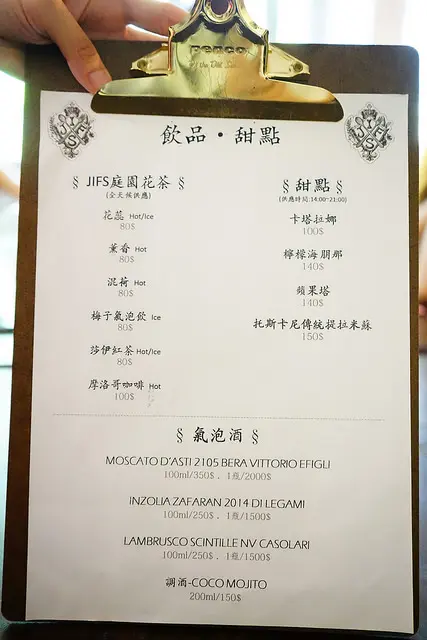 飲品·甜點
§ JIFS庭園花茶 §
(全天候供應)
花蕊 Hot/Ice
80$
薰香 Hot
80$
混荷 Hot
80$
梅子氣泡飲 Ice
80$
莎伊紅茶 Hot/Ice
80$
摩洛哥咖啡 Hot
100$
§ 甜點 §
(供應時間:14:00~21:00)
卡塔拉娜
100$
檸檬海朋那
140$
蘋果塔
140$
托斯卡尼傳統提拉米蘇
150$
§ 氣泡酒 §
MOSCATO D'ASTI 2105 BERA VITTORIO EFIGLI
100ml/350$ 、1瓶/2000$
INZOLIA ZAFARAN 2014 DI LEGAMI
100ml/250$ 、1瓶/1500$
LAMBRUSCO SCINTILLE NV CASOLARI
100ml/250$ 、1瓶/1500$
調酒-COCO MOJITO
200ml/150$